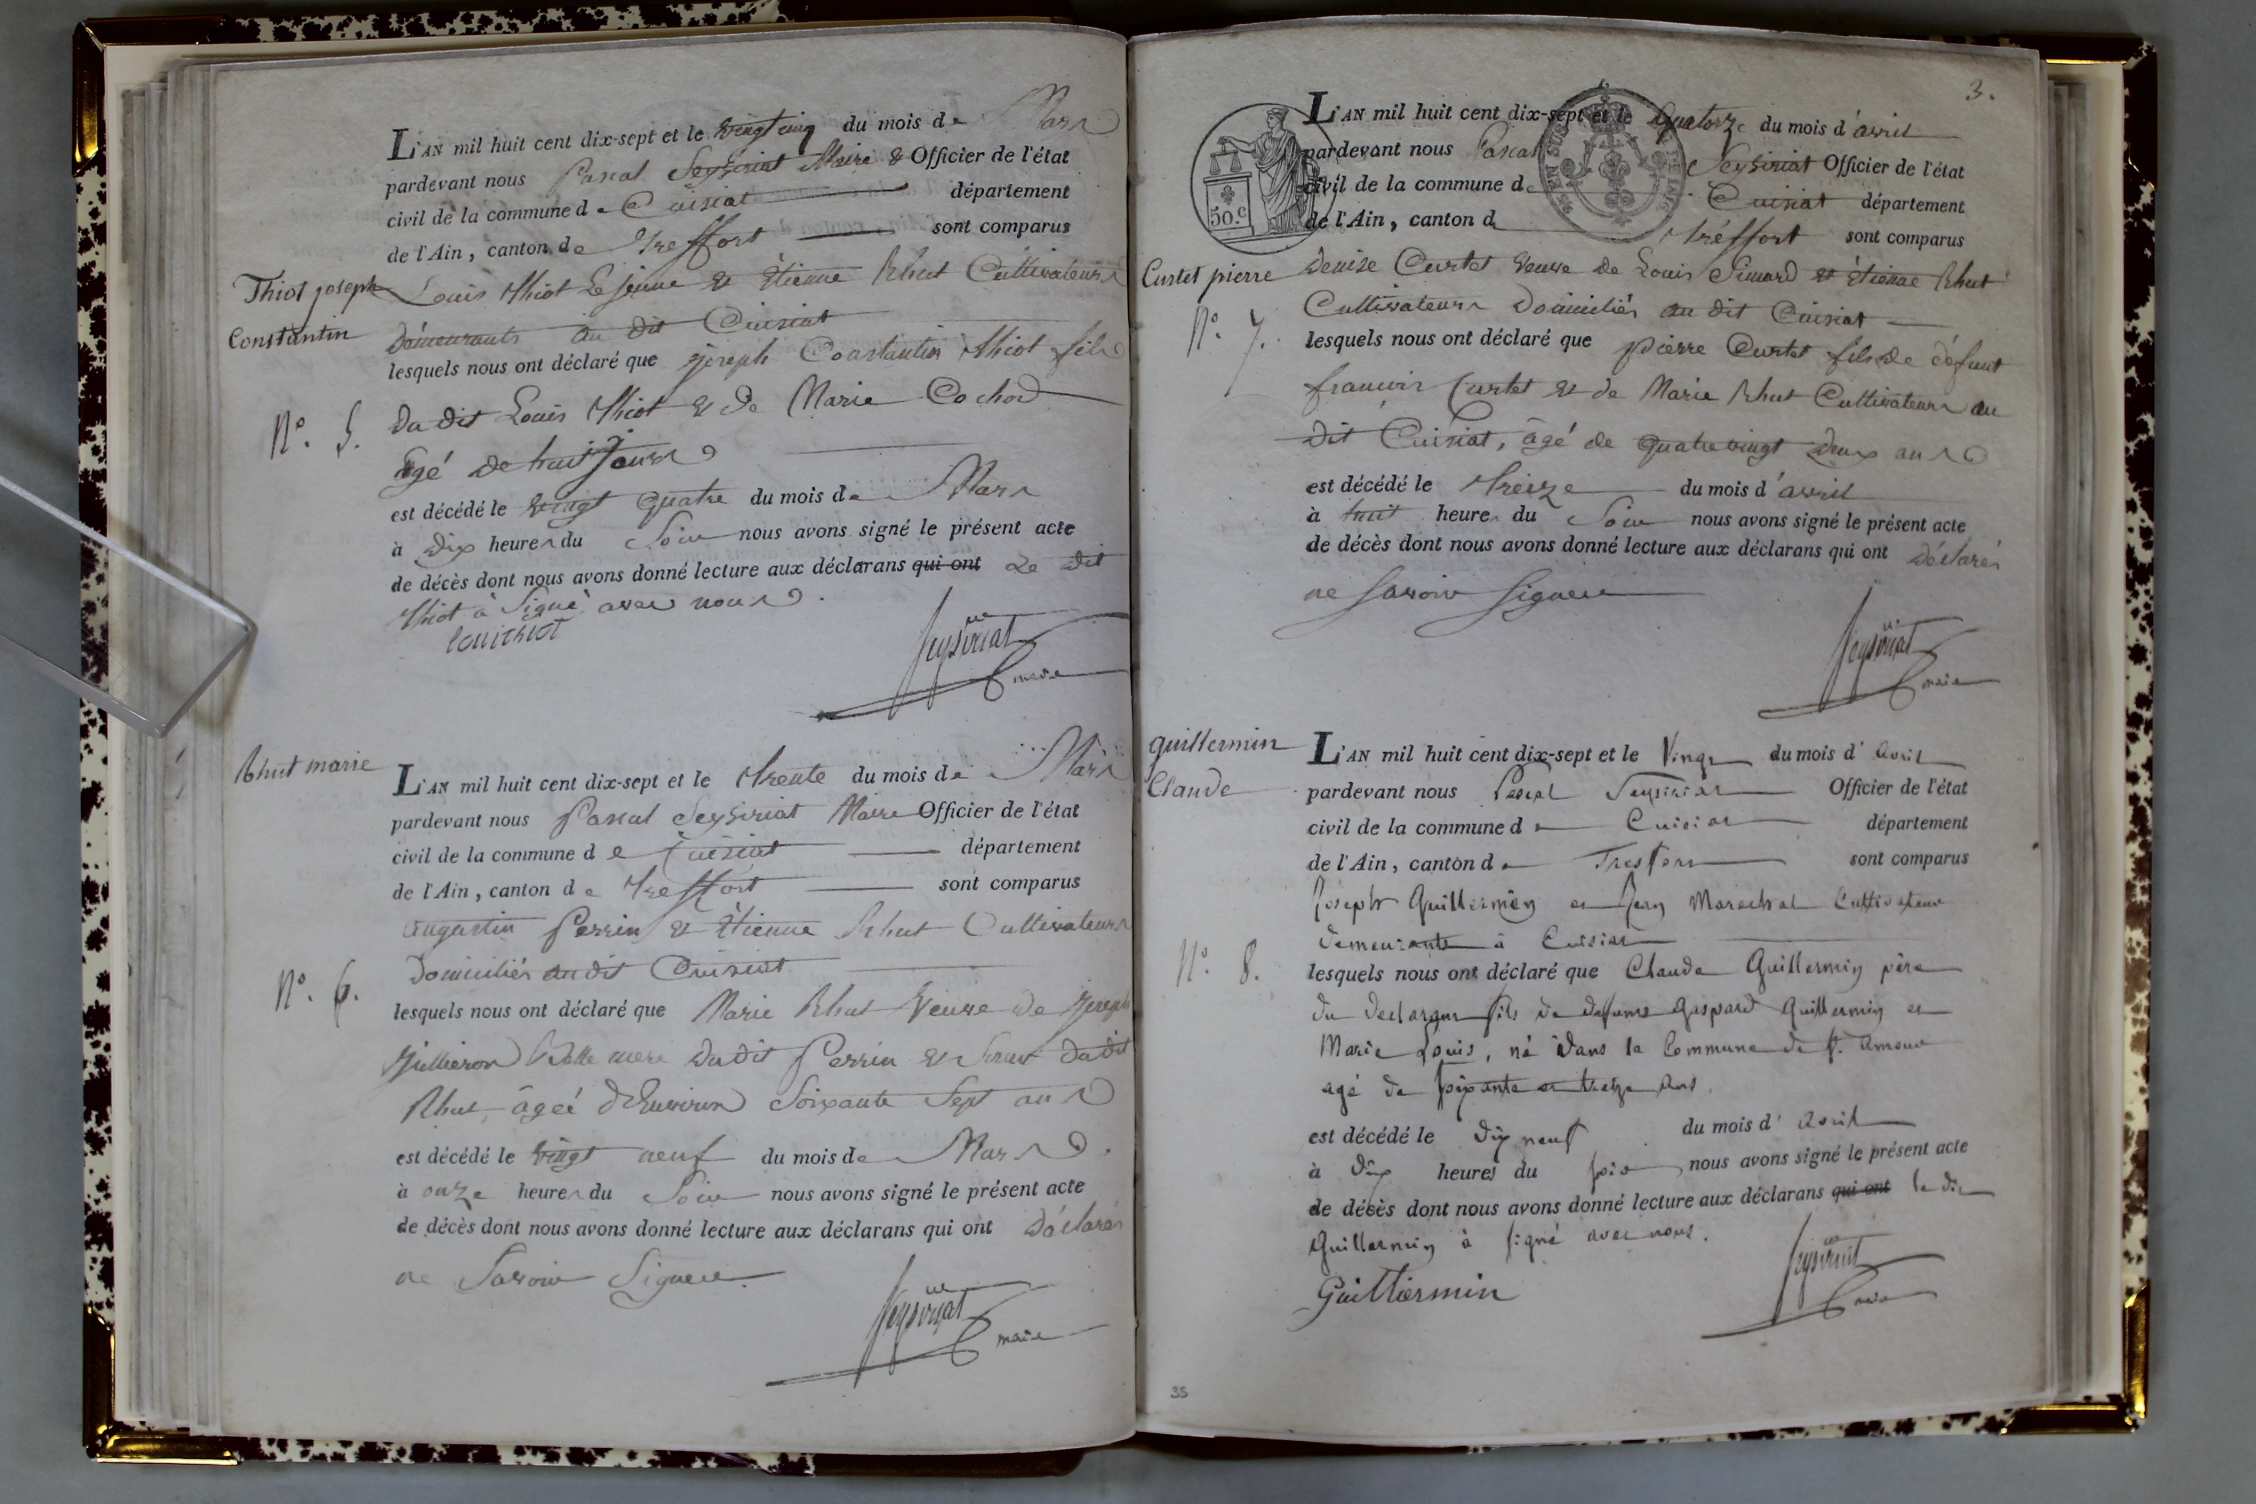 L'AN mil huit cent dix-sept et le vingt cinq du mois de Mars
pardevant nous Pascal Seysiriat Maire & Officier de l'état
civil de la commune de Cuisiat département
de l'Ain, canton de Treffort sont comparus
Thiot joseph
Constantin
N°. 5.
Louis Thiot Le jeune & Etienne Rhut Cultivateurs
Démeurants au dit Cuisiat
lesquels nous ont déclaré que joseph Constantin Thiot fils
Du dit Louis Thiot & de Marie Cochod
âgé de huit jours
est décédé le vingt quatre du mois de Mars
à dix heures du Soir nous avons signé le présent acte
de décès dont nous avons donné lecture aux déclarans qui ont Le dit
Thiot à Signé avec nous.
louithiot
Seysiriat
maire
Rhut marie
N°. 6.
L'AN mil huit cent dix-sept et le trente du mois de Mars
pardevant nous Pascal Seysiriat Maire Officier de l'état
civil de la commune de Cuisiat département
de l'Ain, canton de Treffort sont comparus
augustin Perrin & Etienne Rhut Cultivateurs
Domiciliés audit Cuisiat
lesquels nous ont déclaré que Marie Rhut Veuve de joseph
Belle mere dudit Perrin & Sœur dudit
Rhut, âgée d'Environ Soixante Sept ans
est décédé le vingt neuf du mois de Mars.
à onze heures du Soir nous avons signé le présent acte
de décès dont nous avons donné lecture aux déclarans qui ont Déclarés
ne Savoir Signer
Seysiriat
maire
3.
50.c
L'AN mil huit cent dix-sept et le Quatorze du mois d'avril
pardevant nous Pascal Seysiriat Officier de l'état
civil de la commune de Cuisiat département
de l'Ain, canton de Tréffort sont comparus
Curtet pierre
N°. 7.
Denise Curtet veuve de Louis & Etienne Rhut
Cultivateurs Domiciliés au dit Cuisiat
lesquels nous ont déclaré que pierre Curtet fils de défunt
francois Curtet & de Marie Rhut Cultivateurs au
dit Cuisiat, âgé de quatre vingt deux ans
est décédé le treize du mois d'avril
à huit heures du Soir nous avons signé le présent acte
de décès dont nous avons donné lecture aux déclarans qui ont Déclarés
ne Savoir Signer
Seysiriat
maire
guillermin
Claude
N°. 8.
L'AN mil huit cent dix-sept et le Vingt du mois d' avril
pardevant nous Pascal Seysiriat Officier de l'état
civil de la commune de Cuisiat département
de l'Ain, canton de Treffort sont comparus
Joseph Guillermin et Jean Marechal Cultivateur
demeurants à Cuisiat
lesquels nous ont déclaré que Claude Guillermin père
du Declarant fils de defunt Gaspard Guillermin et
Marie Louis, né dans la Commune de St. Amour
agé de soixante et treize ans.
est décédé le dix neuf du mois d' avril
à dix heures du soir nous avons signé le présent acte
de décès dont nous avons donné lecture aux déclarans qui ont le dit
Guillermin à signé avec nous.
Guilliermin
Seysiriat
maire
35